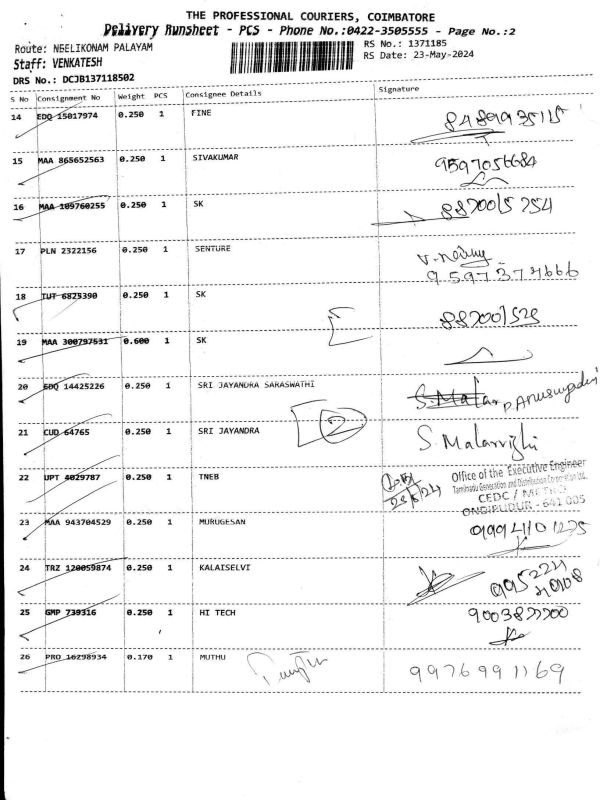 THE PROFESSIONAL COURIERS, COIMBATORE
Delivery Runsheet - PCS - Phone No.:0422-3505555 - Page No.:2
Route: NEELIKONAM PALAYAM
RS No.: 1371185
Staff: VENKATESH
RS Date: 23-May-2024
DRS No.: DCJB137118502
S No Consignment No Weight PCS Consignee Details Signature
14 EDQ 15017974 0.250 1 FINE 8489935115
15 MAA 865652563 0.250 1 SIVAKUMAR 9597056684
16 MAA 109760255 0.250 1 SK
17 PLN 2322156 0.250 1 SENTURE
18 TUT 6825390 0.250 1 SK
19 MAA 300797531 0.600 1 SK
20 EDQ 14425226 0.250 1 SRI JAYANDRA SARASWATHI
21 CUD 64765 0.250 1 SRI JAYANDRA 2 S. Malarvizhi
22 UPT 4029787 0.250 1 TNEB Office of the Executive Engineer
Tamilnadu Generation and Distribution Corporation Ltd.
CEDC / METRO
ONDIPUDUR - 641 005
23 MAA 943704529 0.250 1 MURUGESAN
24 TRZ 120059874 0.250 1 KALAISELVI
25 GMP 739316 0.250 1 HI TECH
26 PRO 16298934 0.170 1 MUTHU 9976991169